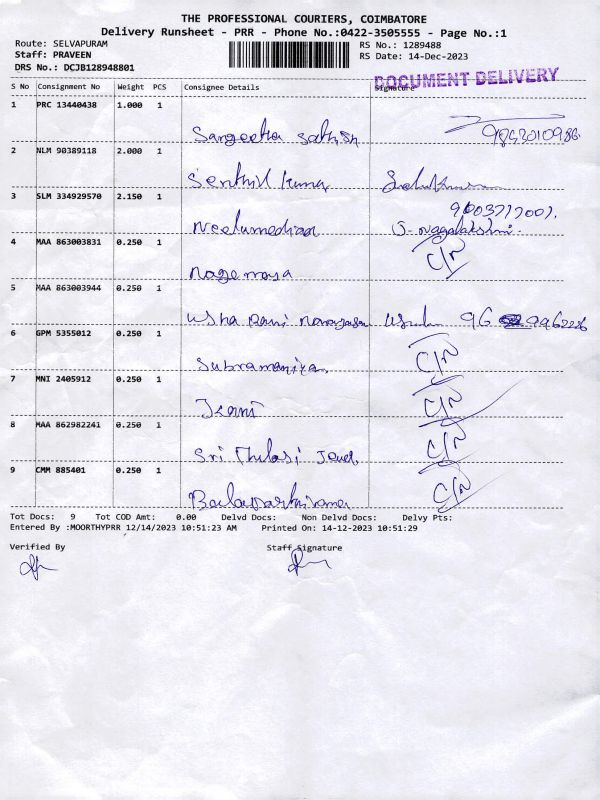 THE PROFESSIONAL COURIERS, COIMBATORE
Delivery Runsheet - PRR - Phone No.:0422-3505555 - Page No.:1
Route: SELVAPURAM
Staff: PRAVEEN
DRS No.: DCJB128948801
RS No.: 1289488
RS Date: 14-Dec-2023
DOCUMENT DELIVERY
S No Consignment No Weight PCS Consignee Details Signature
1 PRC 13440438 1.000 1
Sangeetha Sathish 9842010986.
2 NLM 90389118 2.000 1
Senthil Kumar
3 SLM 334929570 2.150 1
9003717007.
S. Nagalakshmi.
4 MAA 863003831 0.250 1
C/N
5 MAA 863003944 0.250 1
Usha Rani Usha 96 9962286
6 GPM 5355012 0.250 1
Subramaniya C/N
7 MNI 2405912 0.250 1
C/N
8 MAA 862982241 0.250 1
Sri Thulasi Jewel. C/N
9 CMM 885401 0.250 1
C/N
Tot Docs: 9 Tot COD Amt: 0.00 Delvd Docs: Non Delvd Docs: Delvy Pts:
Entered By :MOORTHYPRR 12/14/2023 10:51:23 AM Printed On: 14-12-2023 10:51:29
Verified By Staff Signature